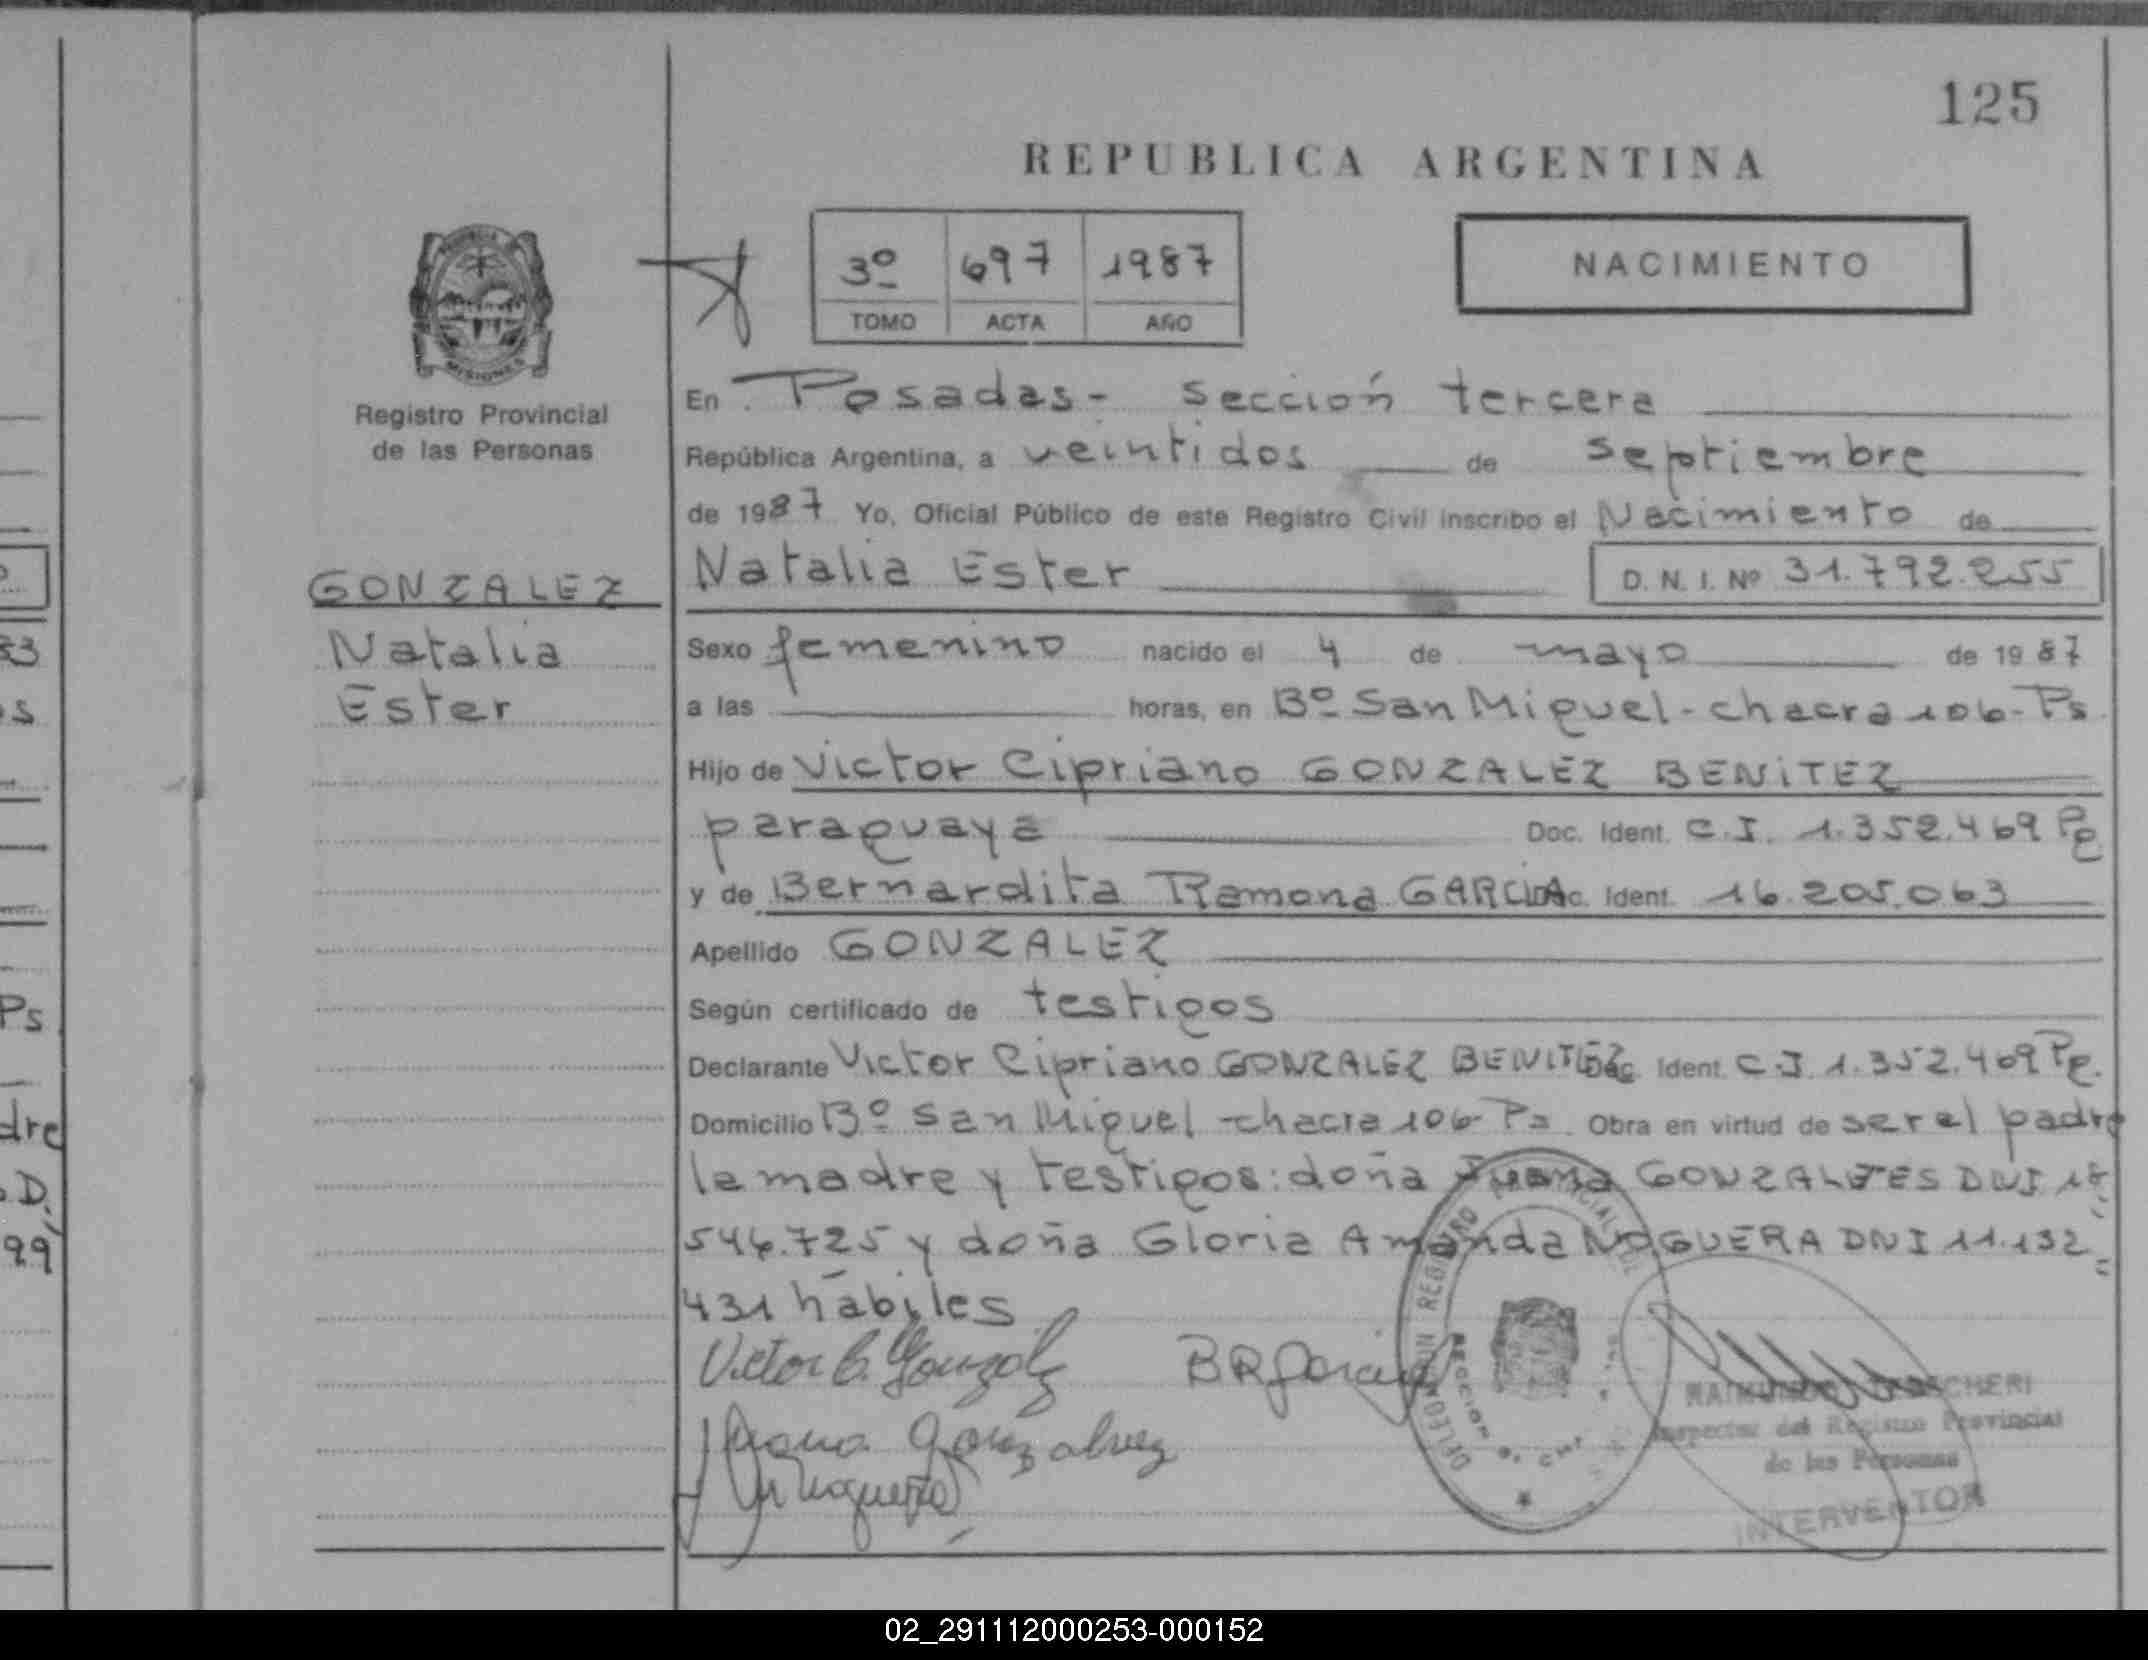 125
REPUBLICA ARGENTINA
3º 697 1987
TOMO ACTA AÑO
NACIMIENTO
MISIONES
Registro Provincial
de las Personas
En Posadas- sección tercera
República Argentina, a veintidos de septiembre
de 1987 Yo, Oficial Público de este Registro Civil inscribo el Nacimiento de
GONZALEZ
Natalia
Ester
Natalia Ester D. N. I. Nº 31.792.255
Sexo femenino nacido el 4 de mayo de 1987
a las horas, en Bº San Miguel-chacra 106-Ps
Hijo de Victor Cipriano GONZALEZ BENITEZ
paraguaya Doc. Ident. C.I. 1.352.469 Pg
y de Bernardita Ramona GARCIA Doc. Ident. 16.205.063
Apellido GONZALEZ
Según certificado de testigos
Declarante Victor Cipriano GONZALEZ BENITEZ Doc. Ident. C.I. 1.352.469 Pg.
Domicilio Bº San Miguel-chacra 106-Ps. Obra en virtud de ser el padre
la madre y testigos: doña Juana DNI
546.725 y doña Gloria Amanda NOGUERA DNI 11.132
431 hábiles
Victor C. Gonzalez BRGarcia
Juana Gonzalvez
Noguera
REGISTRO PROVINCIAL
RAIMUNDO
Inspector del Registro Provincial
de las Personas
INTERVENTOR
83
os
Ps
dre
D.
99
02_291112000253-000152